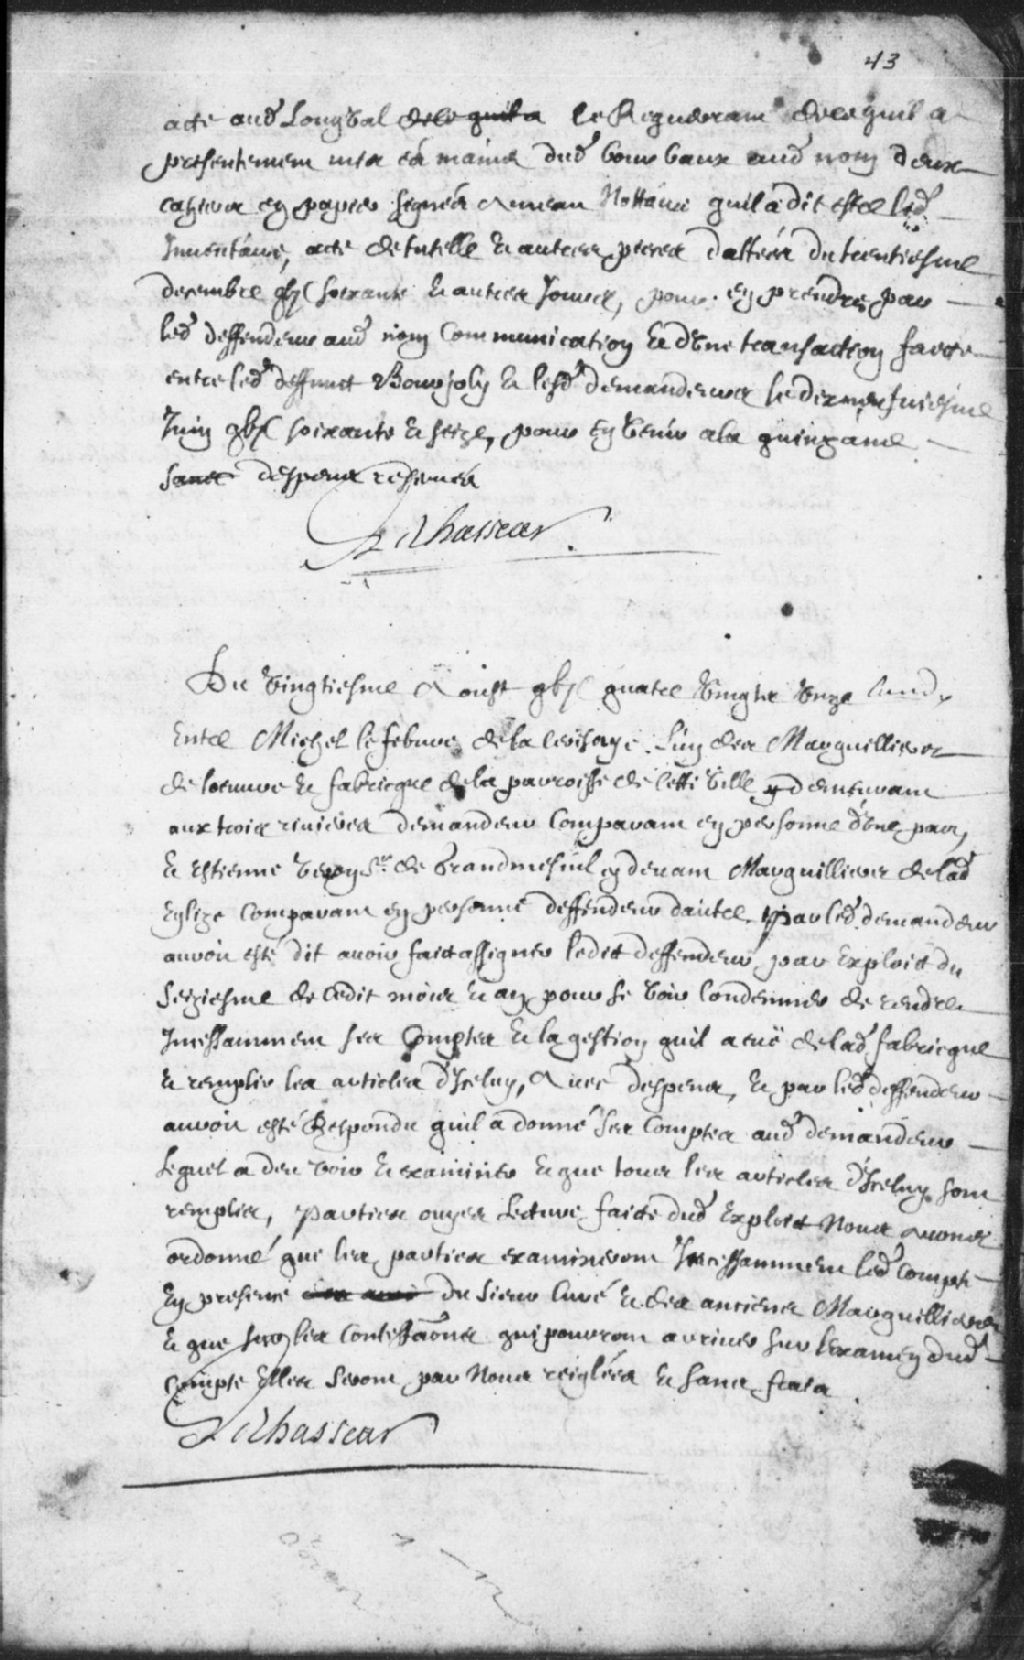 43
acte aud Longval de ce quil a le Requerant de ce quil a
presentement mis es mains dud bonvbaux aud nom deux
cahiers en papier signés Ameau Nottaire quil a dit estre led
Inventaire, acte de tutelle et autres pieces dattées du trentiesme
decembre gbjC soixante et autres Jours, pour en prendre par
led deffendeur aud nom Communication et d'une transaction faicte
entre led deffunct Bourjoly et lesd demandeurs le dernier
Juin gbjC soixante et seize, pour en venir a la quinzaine
sans despens reservés
LeChasseur
Du vingtiesme Aoust gbjC quatre vingts unze lundy
Entre Michel lefebvre de la Cerisaye, L'un des Marguilliers
de loeuvre et fabricque de la parroisse de Cette Ville demeurant
aux trois rivieres demandeur Comparant en personne d'une part,
et Estienne Veron Sr de Grandmesnil cy devant Marguillier de lad
Eglize Comparant en personne deffendeur dautre. Par led demandeur
auroit esté dit avoir faict assigner ledit deffendeur par Exploict du
seziesme de Cedit mois et an pour se voir Condemner de rendre
Incessamment ses Comptes et la gestion quil a euë de lad fabricque
et remplir les articles d'Iceluy, Avec despens, et par led deffendeur
auroit esté Respondu quil a donné ses Comptes aud demandeur
lequel a deu voir et examiner et que tous les articles d'Iceluy sont
remplis, Parties ouyes Lecture faicte dud Exploict Nous Avons
ordonné que les parties examineront Incessamment led Compte
En presence du Sieur Curé et des anciens Marguilliers
et que sur les Contestaôns qui pourront arriver sur l'examen dud
Compte Elles seront par Nous reiglées et sans frais
LeChasseur